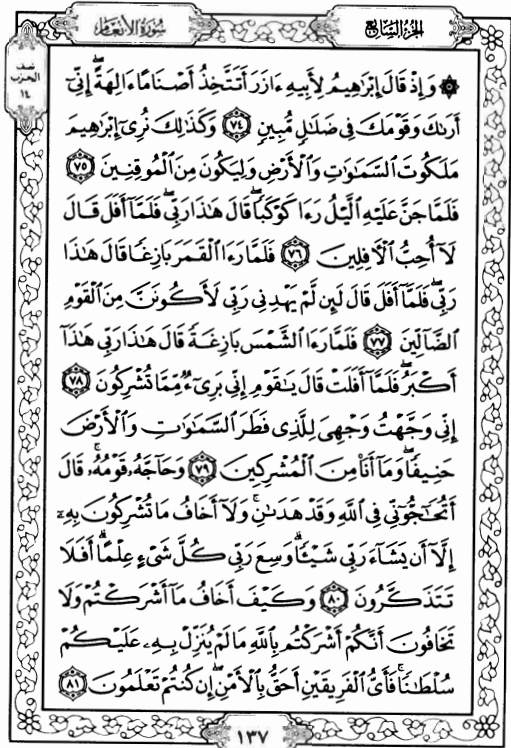 الجزء السابع
سورة الأنعام
نصف
الحزب
١٤
۞ وَإِذْ قَالَ إِبْرَاهِيمُ لِأَبِيهِ ءَازَرَ أَتَتَّخِذُ أَصْنَامًا ءَالِهَةً إِنِّىٓ
أَرَىٰكَ وَقَوْمَكَ فِى ضَلَٰلٍ مُّبِينٍ ٧٤ وَكَذَٰلِكَ نُرِىٓ إِبْرَاهِيمَ
مَلَكُوتَ السَّمَٰوَٰتِ وَالْأَرْضِ وَلِيَكُونَ مِنَ الْمُوقِنِينَ ٧٥
فَلَمَّا جَنَّ عَلَيْهِ الَّيْلُ رَءَا كَوْكَبًا قَالَ هَٰذَا رَبِّى فَلَمَّآ أَفَلَ قَالَ
لَآ أُحِبُّ الْآفِلِينَ ٧٦ فَلَمَّا رَءَا الْقَمَرَ بَازِغًا قَالَ هَٰذَا
رَبِّى فَلَمَّآ أَفَلَ قَالَ لَئِن لَّمْ يَهْدِنِى رَبِّى لَأَكُونَنَّ مِنَ الْقَوْمِ
الضَّآلِّينَ ٧٧ فَلَمَّا رَءَا الشَّمْسَ بَازِغَةً قَالَ هَٰذَا رَبِّى هَٰذَآ
أَكْبَرُ فَلَمَّآ أَفَلَتْ قَالَ يَٰقَوْمِ إِنِّى بَرِىٓءٌ مِّمَّا تُشْرِكُونَ ٧٨
إِنِّى وَجَّهْتُ وَجْهِىَ لِلَّذِى فَطَرَ السَّمَٰوَٰتِ وَالْأَرْضَ
حَنِيفًا وَمَآ أَنَا۠ مِنَ الْمُشْرِكِينَ ٧٩ وَحَآجَّهُۥ قَوْمُهُۥ قَالَ
أَتُحَٰٓجُّوٓنِّى فِى اللَّهِ وَقَدْ هَدَىٰنِ وَلَآ أَخَافُ مَا تُشْرِكُونَ بِهِۦٓ
إِلَّآ أَن يَشَآءَ رَبِّى شَيْـًٔا وَسِعَ رَبِّى كُلَّ شَىْءٍ عِلْمًا أَفَلَا
تَتَذَكَّرُونَ ٨٠ وَكَيْفَ أَخَافُ مَآ أَشْرَكْتُمْ وَلَا
تَخَافُونَ أَنَّكُمْ أَشْرَكْتُم بِاللَّهِ مَا لَمْ يُنَزِّلْ بِهِۦ عَلَيْكُمْ
سُلْطَٰنًا فَأَىُّ الْفَرِيقَيْنِ أَحَقُّ بِالْأَمْنِ إِن كُنتُمْ تَعْلَمُونَ ٨١
١٣٧